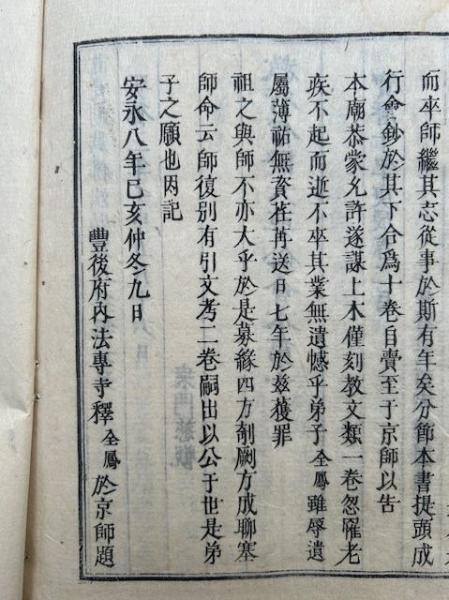 而卒師繼其志從事於斯有年矣分節本書提頭成
行會鈔於其下合爲十卷自賣至于京師以告
本廟恭蒙允許遂謀上木僅刻教文類一卷忽罹老
疾不起而逝不卒其業無遺憾乎弟子全鳳雖辱遺
屬薄祐無資荏苒送日七年於玆獲罪
祖之與師不亦大乎於是募緣四方剞劂方成聊塞
師命云師復別有引文考二卷嗣出以公于世是弟
子之願也因記
安永八年己亥仲冬九日
豐後府內法專寺釋全鳳於京師題